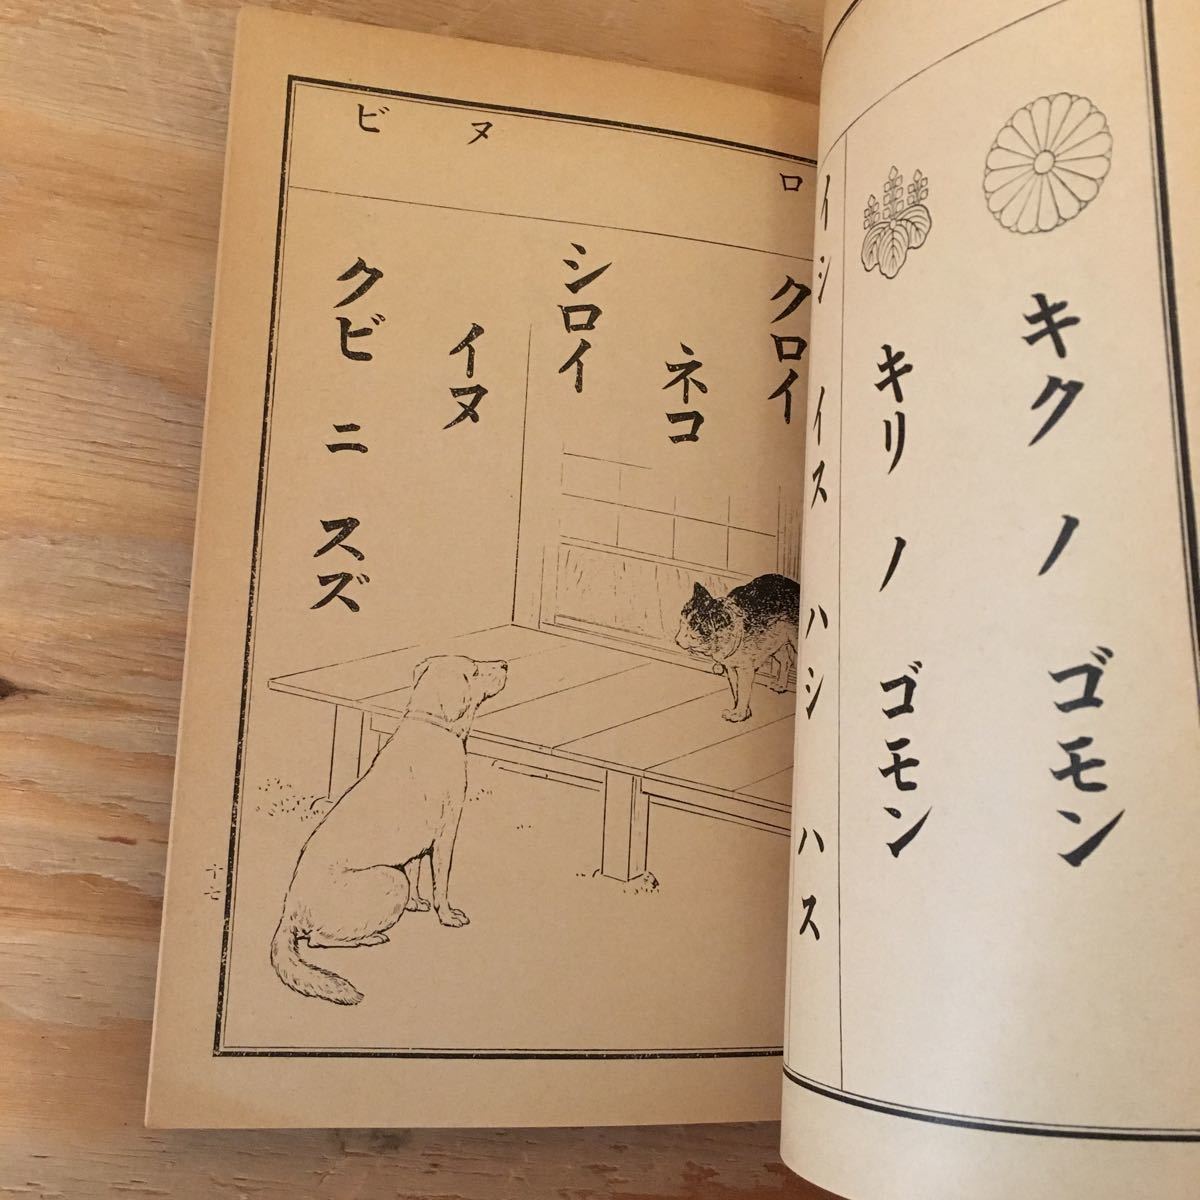 キク ノ ゴモン
キリ ノ ゴモン
イシ イス ハシ ハス
ロ
ヌ
ビ
クロイ
ネコ
シロイ
イヌ
クビ ニ スズ
十七